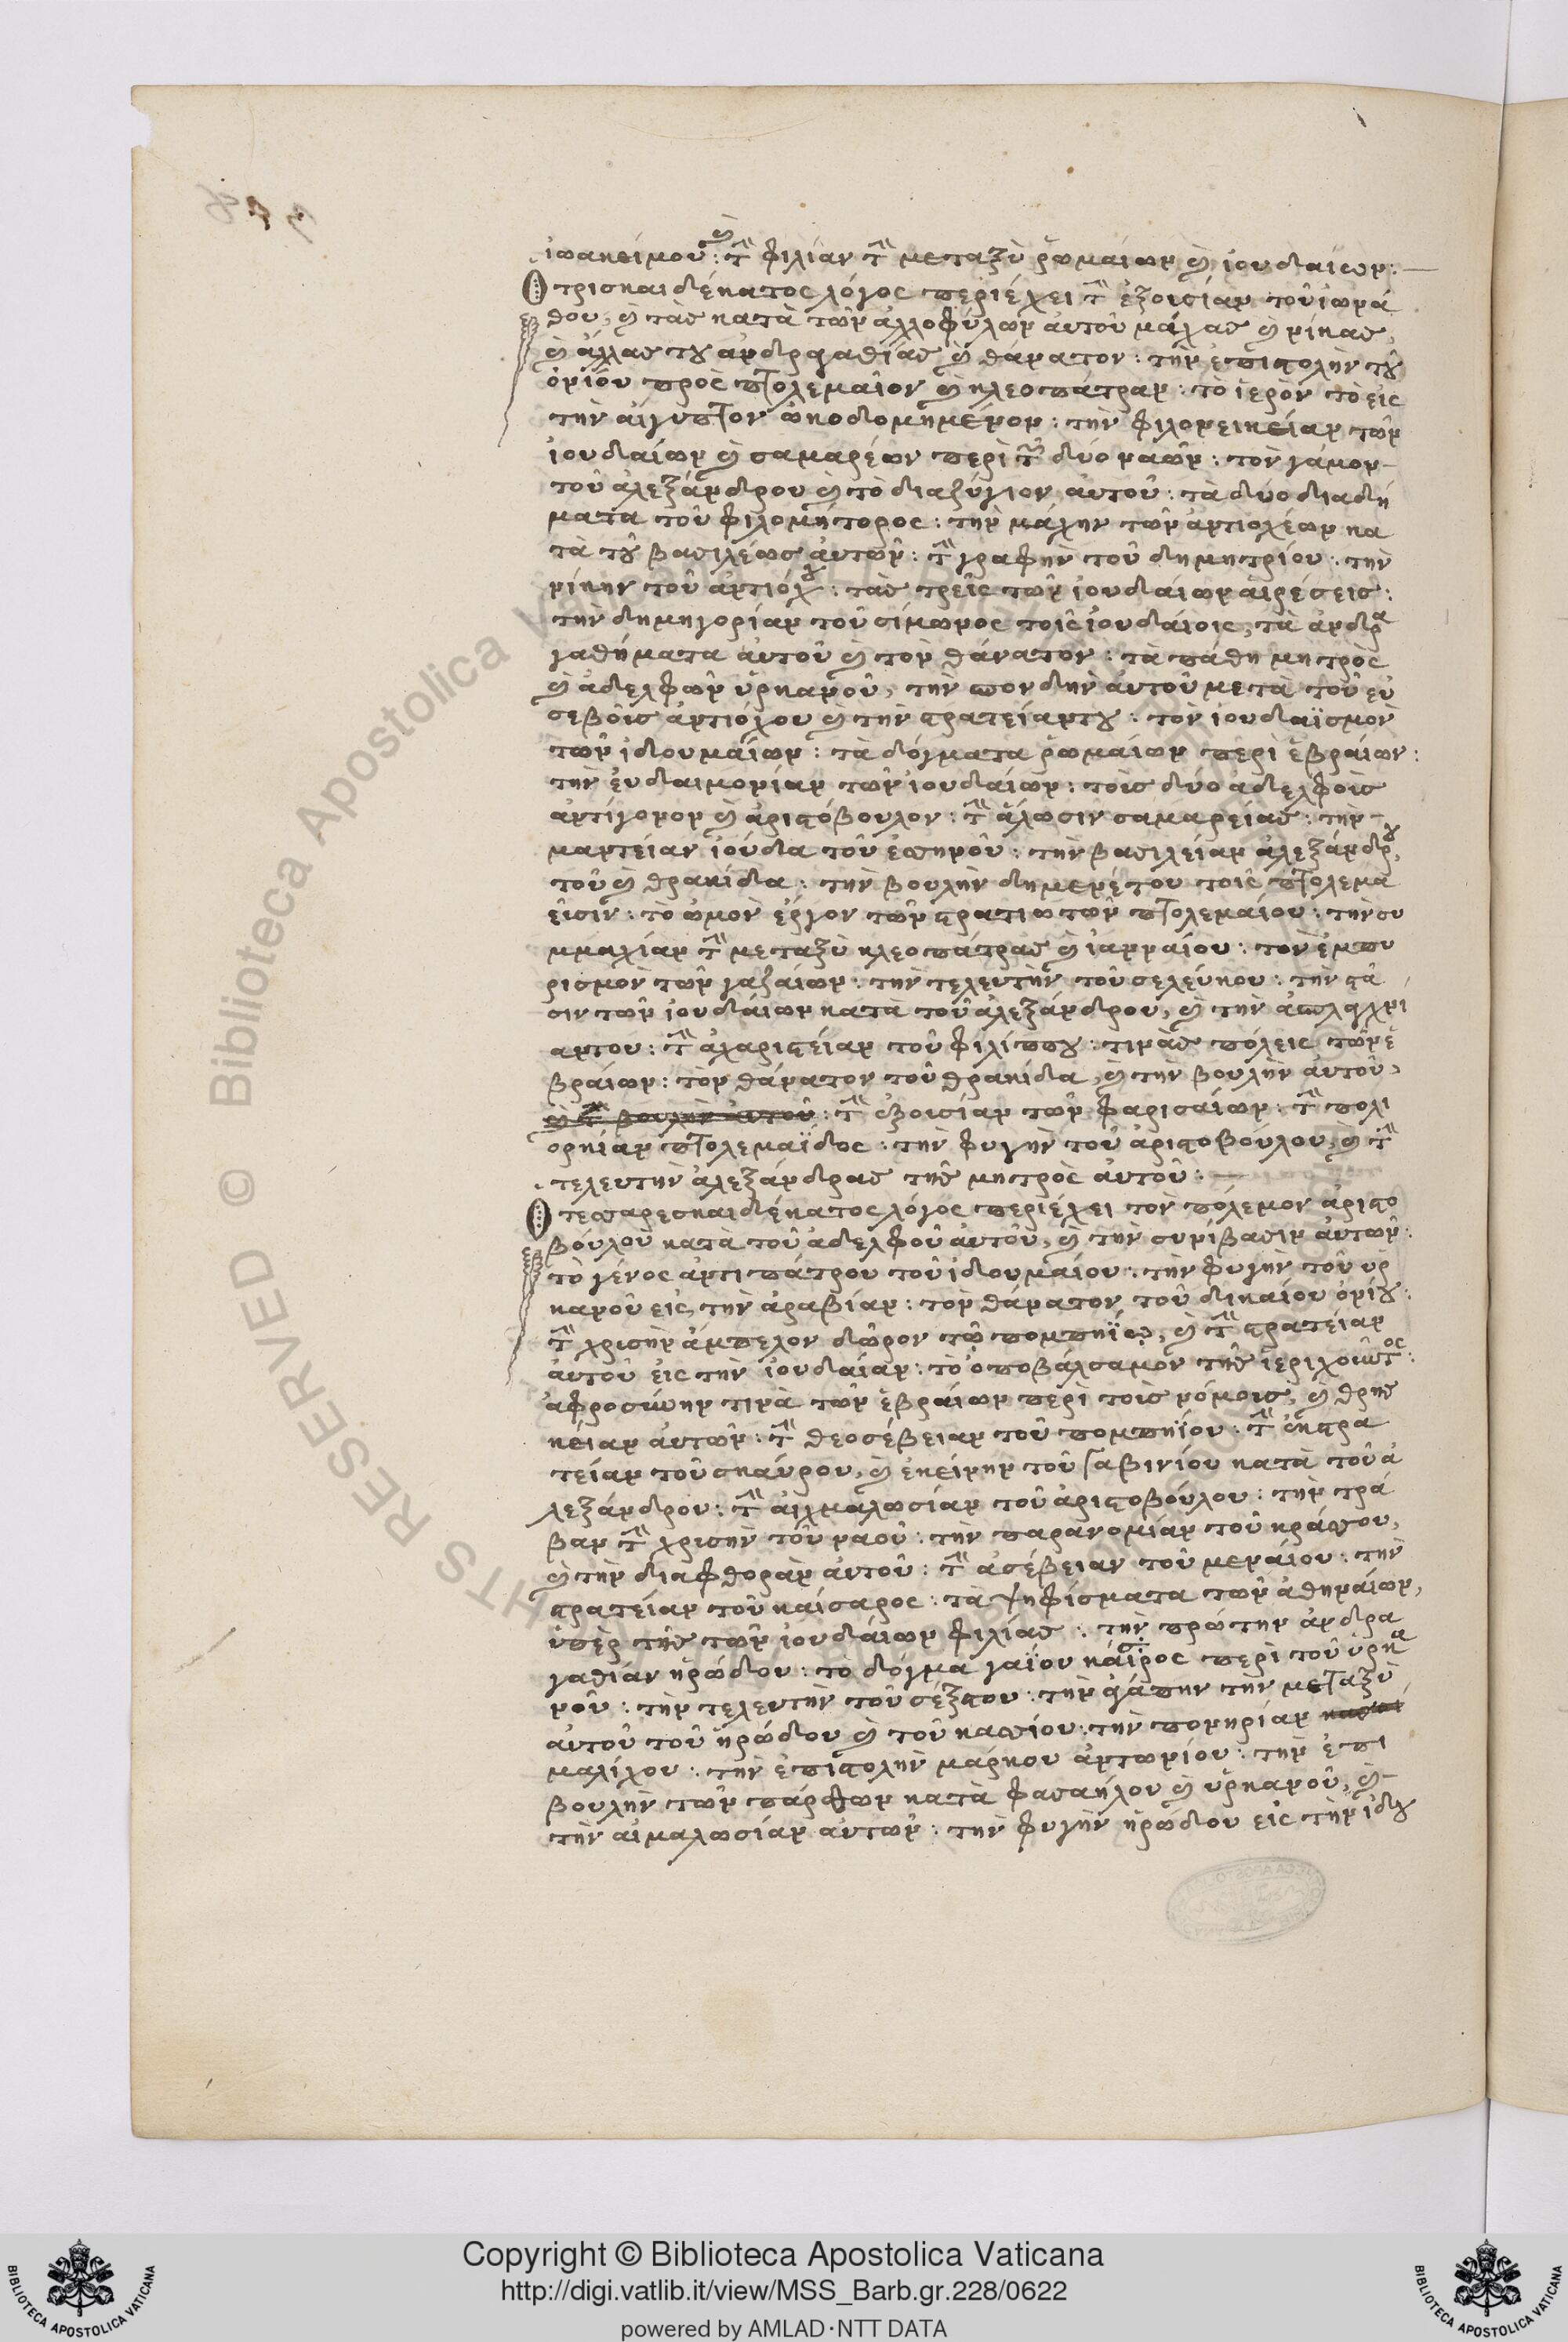 ἰωακείμου: καὶ τὴν φιλίαν τὴν μεταξὺ ῥωμαίων καὶ ἰουδαίων:—
Ὁ τρισκαιδέκατος λόγος περιέχει τὴν ἐξουσίαν τοῦ ἰωνά
θου, καὶ τὰς κατὰ τῶν ἀλλοφύλων αὐτοῦ μάχας καὶ νίκας,
καὶ ἄλλας του ἀνδραγαθίας καὶ θάνατον: τὴν ἐπιστολὴν τοῦ
ὀνίου πρὸς πτολεμαῖον καὶ κλεοπάτραν: τὸ ἱερὸν τὸ εἰς
τὴν αἴγυπτον ὠκοδομημένον: τὴν φιλονεικείαν τῶν
ἰουδαίων καὶ σαμαρέων περὶ τῶν δύο ναῶν: τὸν γάμον
τοῦ ἀλεξάνδρου καὶ τὸ διαζύγιον αὐτοῦ: τὰ δύο διαδή
ματα τοῦ φιλομήτορος: τὴν μάχην τῶν ἀντιοχέων κα
τὰ τοῦ βασιλέως αὐτῶν: τὴν γραφὴν τοῦ δημητρίου: τὴν
νίκην τοῦ ἀντιόχου: τὰς τρεῖς τῶν ἰουδαίων αἱρέσεις:
τὴν δημηγορίαν τοῦ σίμωνος τοῖς ἰουδαίοις, τὰ ἀνδρα
γαθήματα αὐτοῦ καὶ τὸν θάνατον: τὰ πάθη μητρὸς
καὶ ἀδελφῶν ὑρκανοῦ, τὴν σπονδὴν αὐτοῦ μετὰ τοῦ εὐ
σεβοῖς ἀντιόχου καὶ τὴν στρατείαν του: τὸν ἰουδαϊσμὸν
τῶν ἰδουμαίων: τὰ δόγματα ῥωμαίων περὶ ἑβραίων:
τὴν εὐδαιμονίαν τῶν ἰουδαίων: τοὶς δύο ἀδελφοὶς
ἀντίγονον καὶ ἀριστόβουλον: τὴν ἅλωσιν σαμαρείας: τὴν
μαντείαν ἰούδα τοῦ ἐσσηνοῦ: τὴν βασιλείαν ἀλεξάνδρου,
τοῦ καὶ θρακίδα: τὴν βουλὴν δημενέτου τοῖς πτολεμα
εῖσιν: τὸ ὠμὸν ἔργον τῶν στρατιωτῶν πτολεμαίου: τὴν συ
μμαχίαν τὴν μεταξὺ κλεοπάτρας καὶ ἰανναίου: τὸν ἐμπυ
ρισμὸν τῶν γαζαίων: τὴν τελευτὴν τοῦ σελεύκου: τὴν στά
σιν τῶν ἰουδαίων κατὰ τοῦ ἀλεξάνδρου, καὶ τὴν
αν του: τὴν ἀχαριστείαν τοῦ φιλίππου: τινὰς πόλεις τῶν ἑ
βραίων: τὸν θάνατον τοῦ θρακίδα, καὶ τὴν βουλὴν αὐτοῦ,
καὶ τὴν βουλὴν αὐτοῦ: τὴν ἐξουσίαν τῶν φαρισαίων: τὴν πολι
ορκίαν πτολεμαΐδος: τὴν φυγὴν τοῦ ἀριστοβούλου, καὶ τὴν
τελευτὴν ἀλεξάνδρας τῆς μητρὸς αὐτοῦ:—
Ὁ τεσσαρεσκαιδέκατος λόγος περιέχει τὸν πόλεμον ἀριστο
βούλου κατὰ τοῦ ἀδελφοῦ αὐτοῦ, καὶ τὴν συνίβασιν αὐτῶν:
τὸ γένος ἀντιπάτρου τοῦ ἰδουμαίου: τὴν φυγὴν τοῦ ὑρ
κανοῦ εἰς τὴν ἀραβίαν: τὸν θάνατον τοῦ δικαίου ὀνίου:
τὴν χρισὴν ἄμπελον δῶρον τῷ πομπηΐῳ, καὶ τὴν στρατείαν
αὐτοῦ εἰς τὴν ἰουδαίαν: τὸ ὀποβάλσαμον τῆς ἱεριχοῦντος:
ἀφροσύνην τινὰ τῶν ἑβραίων περὶ τοὶς νόμοις, καὶ θρησ
κείαν αὐτῶν: τὴν θεοσέβειαν τοῦ πομπηΐου: τὴν ἐκστρα
τείαν τοῦ σκαύρου, καὶ ἐκείνην τοῦ γαβινίου κατὰ τοῦ ἀ
λεξάνδρου: τὴν αἰχμαλωσίαν τοῦ ἀριστοβούλου: τὴν τρά
βαν τὴν χρισὴν τοῦ ναοῦ: τὴν παρανομίαν τοῦ κράσσου,
καὶ τὴν διαφθορὰν αὐτοῦ: τὴν ἀσέβειαν τοῦ μεναίου: τὴν
στρατείαν τοῦ καίσαρος: τὰ ψηφίσματα τῶν ἀθηναίων,
ὑπὲρ τῆς τῶν ἰουδαίων φιλίας: τὴν πρώτην ἀνδρα
γαθίαν ἡρώδου: τὸ δόγμα γαΐου καίσαρος περὶ τοῦ ὑρκα
νοῦ: τὴν τελευτὴν τοῦ σέξστου: τὴν ἀγάπην τὴν μεταξὺ
αὐτοῦ τοῦ ἡρώδου καὶ τοῦ κασσίου: τὴν πονηρίαν
μαλίχου: τὴν ἐπιστολὴν μάρκου ἀντωνίου: τὴν ἐπι
βουλὴν τῶν πάρθων κατὰ φασαήλου καὶ ὑρκανοῦ, καὶ
τὴν αἰμαλωσίαν αὐτῶν: τὴν φυγὴν ἡρώδου εἰς τὴν ἰδου
Biblioteca Apostolica Vaticana
RIGHTS RESERVED ©
Copyright © Biblioteca Apostolica Vaticana
http://digi.vatlib.it/view/MSS_Barb.gr.228/0622
powered by AMLAD·NTT DATA
BIBLIOTECA APOSTOLICA VATICANA
BIBLIOTECA APOSTOLICA VATICANA